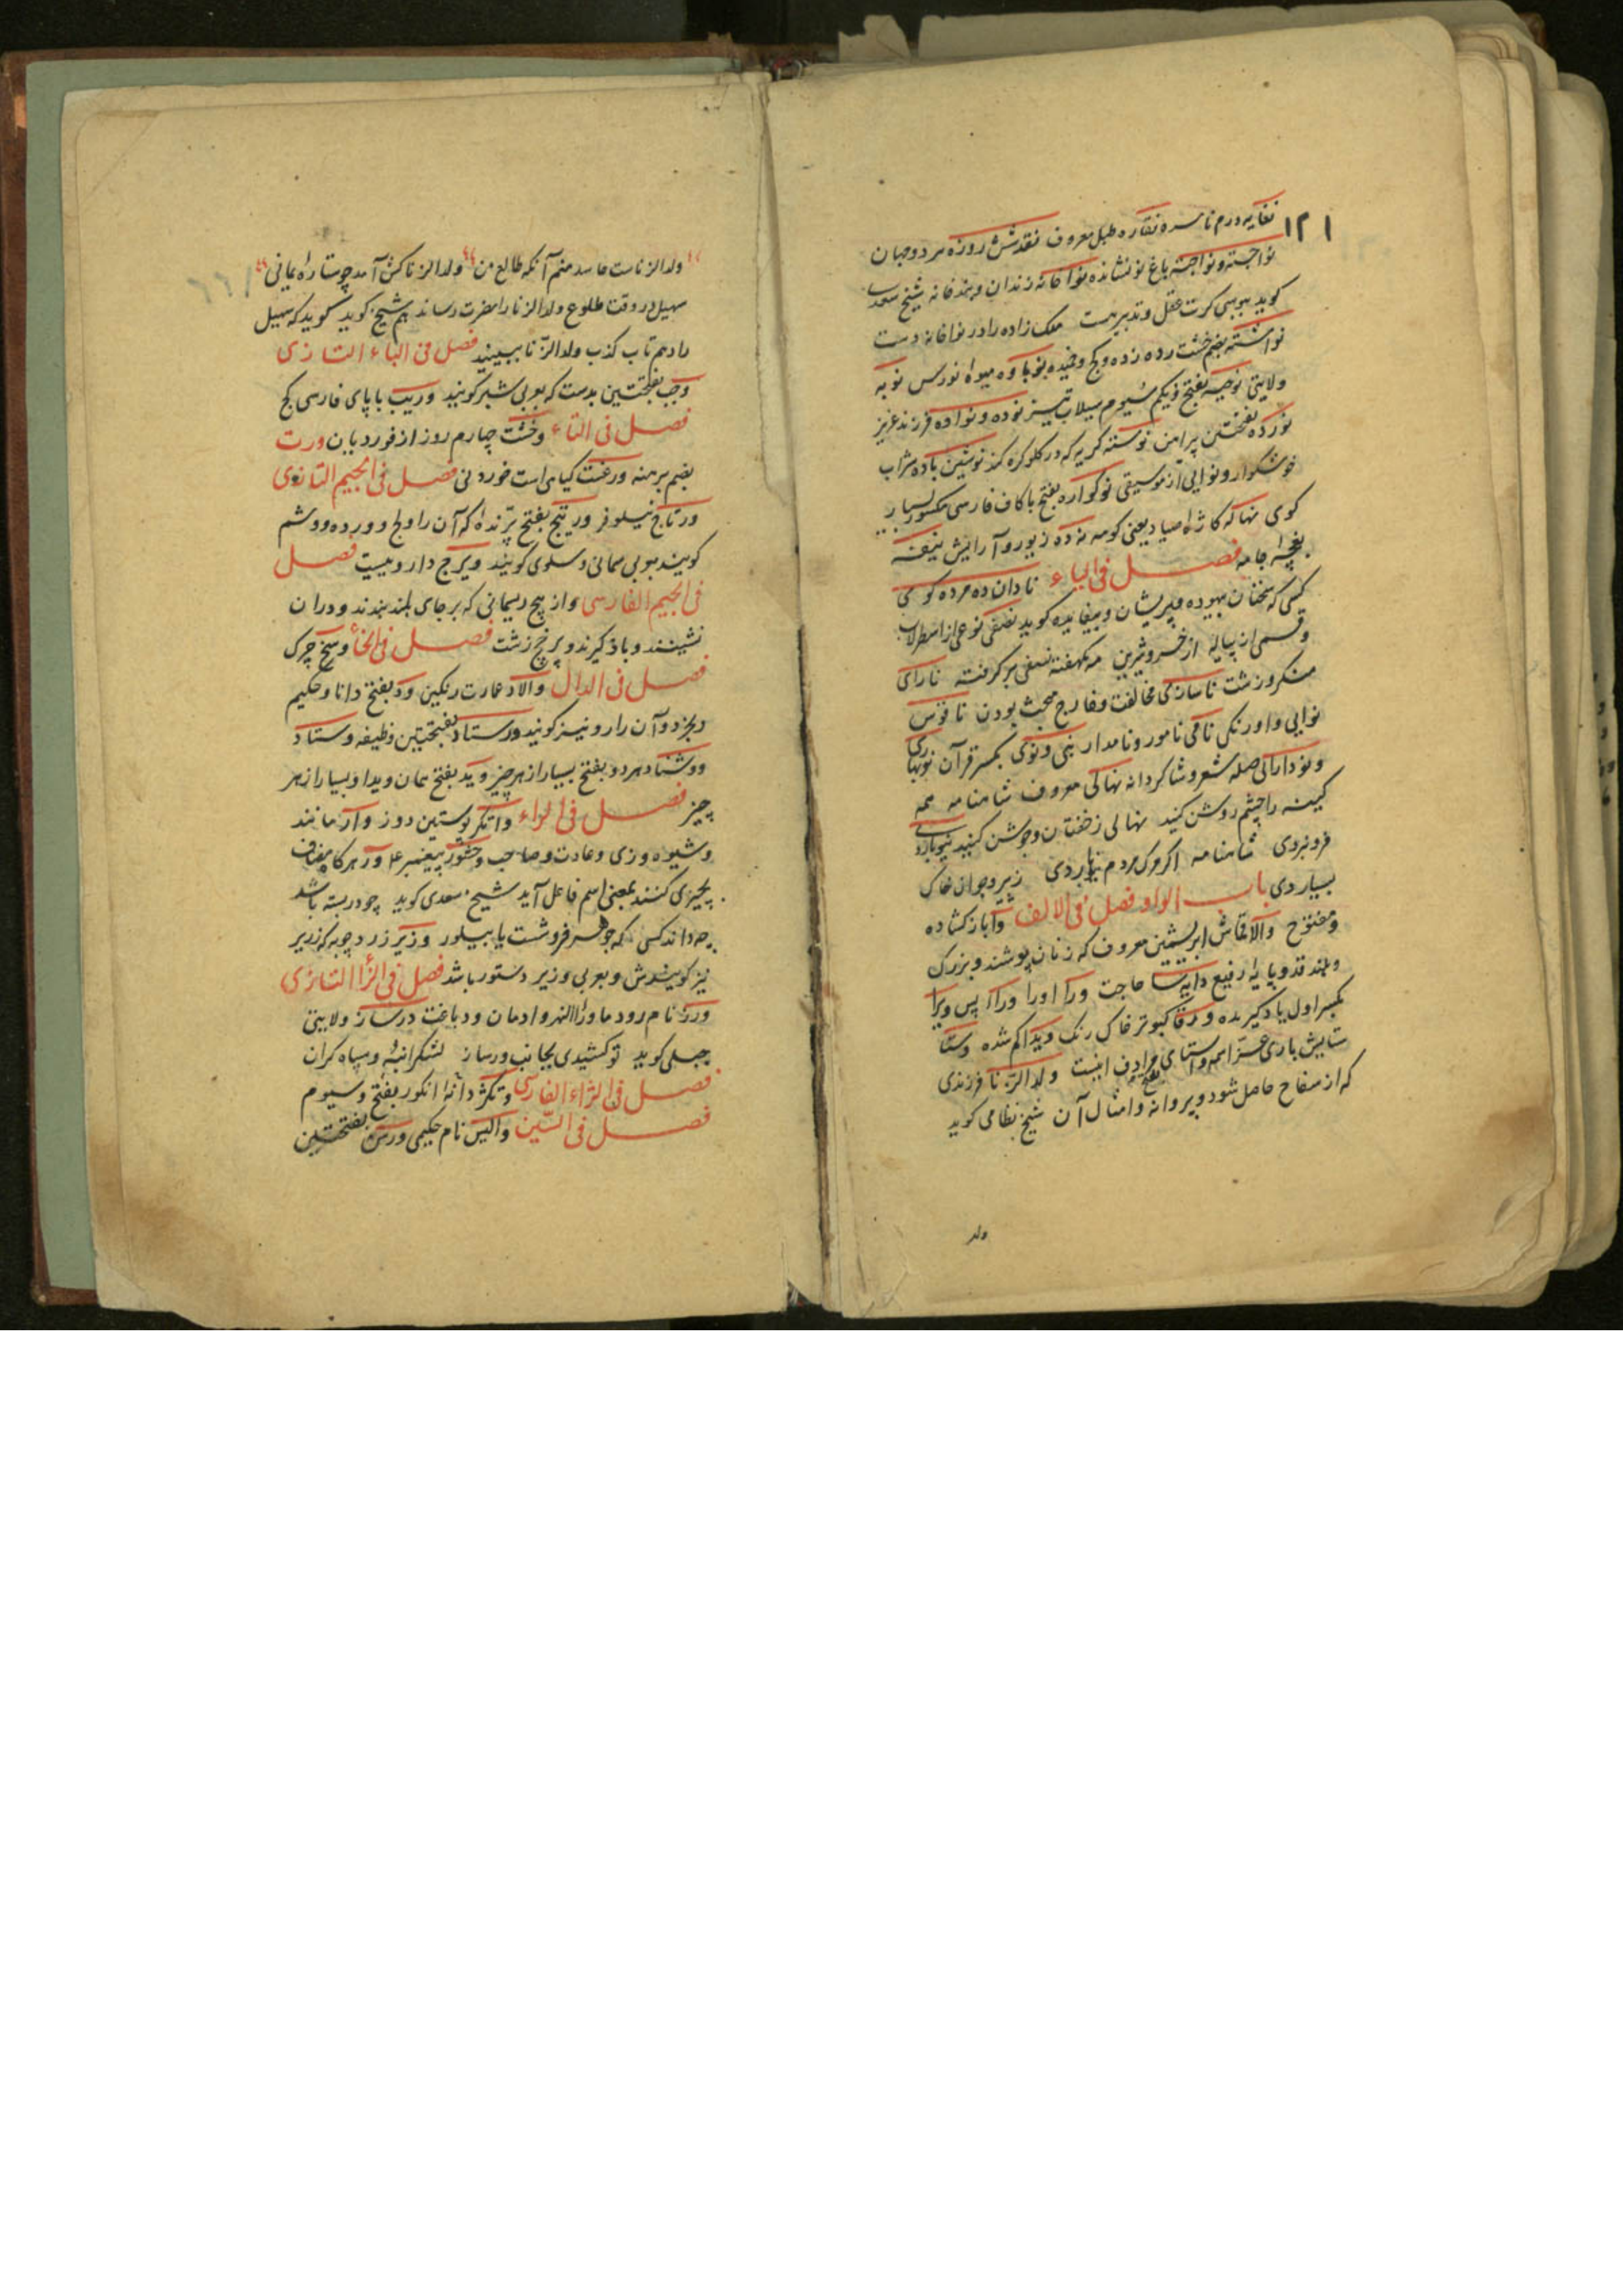 ۱۲۱
نغایه درم ناسره نقاره طبل معروف نقد شش روزه هر دو جهان
نواجسته و نواجسته باغ نو نشانده نواخانه زندان و بندخانه شیخ سعدی
کوید ببوسی کرت عقل و تدبیر هست ملک زاده را در نواخانه دست
نواشته بضم خشت رده زده و کج و خمیده نوباوه میوه نورس نوبه
ولایتی نوجبه بفتح و یکم سیوم سیلاب تیز نوده و نواده فرزند عزیز
نورده بفتحتین پیرامن نوسته کریه که در کلو کره کند نوشین باده شراب
خوشکوار و نوایی از موسیقی نوکواره بفتح با کاف فارسی مکسور بسیار
کوی نهاله کازه صیاد یعنی کومه نهاده زیور و آرایش نیفه
بغچه جامه فصل فی الیاء نادان ده مرده کوی
کسی که سخنان بیهوده و پریشان و بیفایده کوید نصفی نوعی از اسطرلاب
و قسمی از پیاله از خسرو شیرین مه یکهفته نصفی بر کرفته نارای
منکر و زشت ناسازی مخالفت و خارج مبحث بودن ناقوس
نوایی و اورنکی نامی نامور و نامدار نبی و نوی بکسر قرآن نوبهاری
و نودارانی صله شعر و شاکردانه نهالی معروف شاهنامه همه
کینه را چشم روشن کنید نهالی ز خفتان و جوشن کنید نیوباردی
فرو بردی شاهنامه اکر مرک مردم نیوباردی ز پیر و جوان خاک
بسیاردی باب الواو فصل فی الالف وا باز کشاده
و مفتوح والا قماش ابریشمین معروف که زنان پوشند و بزرک
و بلند قد و پایه رفیع وایسا حاجت ورا او را ورا پس ویرا
بکسر اول یاد کیرنده ورقا کبوتر خاک رنک ویدا کم شده وستا
ستایش باری عز اسمه و استای مرادف اینست ولد الزنا فرزندی
که از سفاح حاصل شود و پروانه و امثال آن شیخ نظامی کوید
ولد
ولد الزناست حاسد منم آنکه طالع من ولد الزنا کش آمد چو ستاره یمانی
سهیل در وقت طلوع ولد الزنا را مضرت رساند هم شیخ کوید کوید که سهیل
را دهم تاب کذب ولد الزنا ببینید فصل فی الباء التازی
وجب بفتحتین بدست که بعربی شبر کویند وریب با پای فارسی کج
فصل فی التاء وخشت چهارم روز از فوردیان ورت
بضم برهنه ورغست کیاهی است خوردنی فصل فی الجیم التازی
ورتاج نیلوفر ورتیج بفتح پرنده که آن را ولج و ورده و وشم
کویند بعربی سمانی و سلوی کویند ویرج داروییست فصل
فی الجیم الفارسی وازیچ ریسمانی که بر جای بلند بندند و دران
نشینند و باد کیرند و برخج زشت فصل فی الخاء وسخ چرک
فصل فی الدال والاد عمارت رنکین ود بفتح دانا و حکیم
و بخرد و آن را رد نیز کویند ورستاد بفتحتین وظیفه وستاد
و وشناد هر دو بفتح بسیار از هر چیز وید بفتح همان ویدا و بسیار از هر
چیز فصل فی الراء واتکر پوستین دوز وار مانند
و شیوه ورزی و عادت و صاحب وخشور پیغمبر ع ور هر کاه مضاف
بچیزی کنند بمعنی اسم فاعل آید شیخ سعدی کوید چو در بسته باشد
چه داند کسی که جوهر فروشست یا پیلور وزیر زرد چوبه که زریر
نیز کویندش و بعربی وزیر دستور باشد فصل فی الزا التازی
ورز نام رود ماوراء النهر و ادمان و دباغت ورساز ولایتی
جبلی کوید توکشیدی بجانب ورساز لشکر انبه و سپاه کران
فصل فی الزاء الفارسی وتکژ دانه انکور بفتح و سیوم
فصل فی السین والیس نام حکیمی ورس بفتحتین